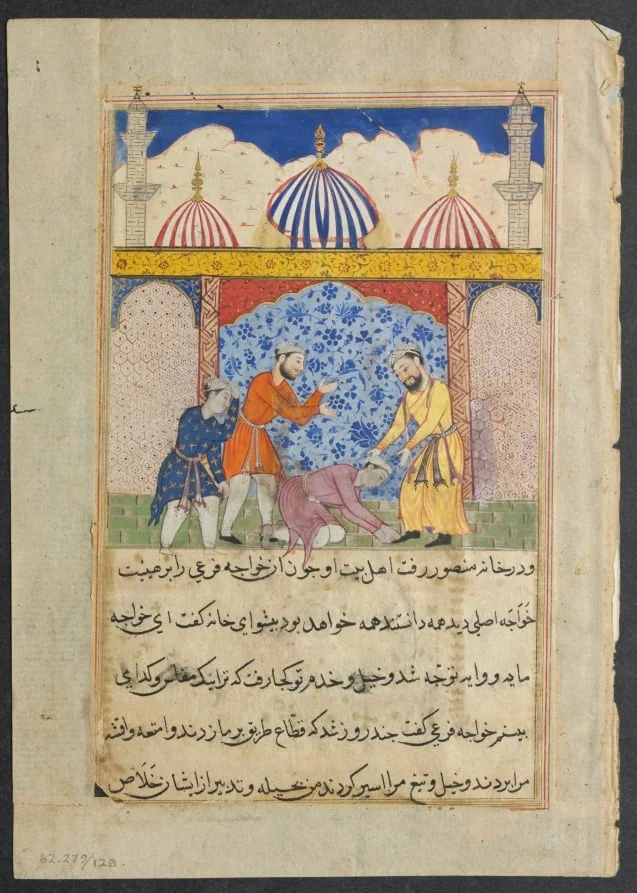 ودر خانه منصور رفت اهل بیت او جون ان خواجه فرعی را بر هیئت
خواجه اصلی دیدهمه دانستند همه خواهد بود بیشوای خانه کفت ای خواجه
مایه و وایه توجه شد وخیل و خدم توکجا رفت که ترا یک مفلس وکدای
بینم خواجه فرعی کفت جند روز شد که قطاع طریق بر ما زدند وامتعه واقشه
مرا بردند وخیل و تبع مرا اسیر کردند من بحیله و تدبیر از ایشان خلاص
62.279/128